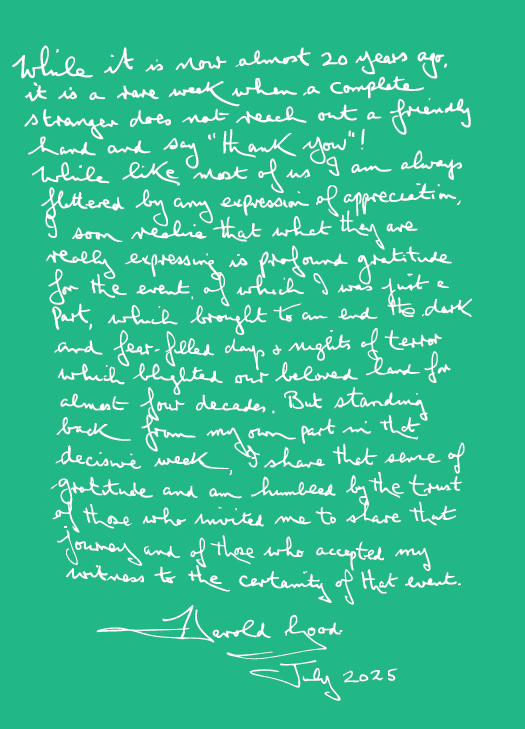 While it is now almost 20 years ago,
it is a rare week when a complete
stranger does not reach out a friendly
hand and say "thank you"!
While like most of us I am always
flattered by any expression of appreciation,
I soon realise that what they are
really expressing is profound gratitude
for the event, of which I was just a
part, which brought to an end the dark
and fear-filled days & nights of terror
which blighted our beloved land for
almost four decades. But standing
back from my own part in that
decisive week, I share that sense of
gratitude and am humbled by the trust
of those who invited me to share that
journey and of those who accepted my
witness to the certainity of that event.
Harold Good
July 2025